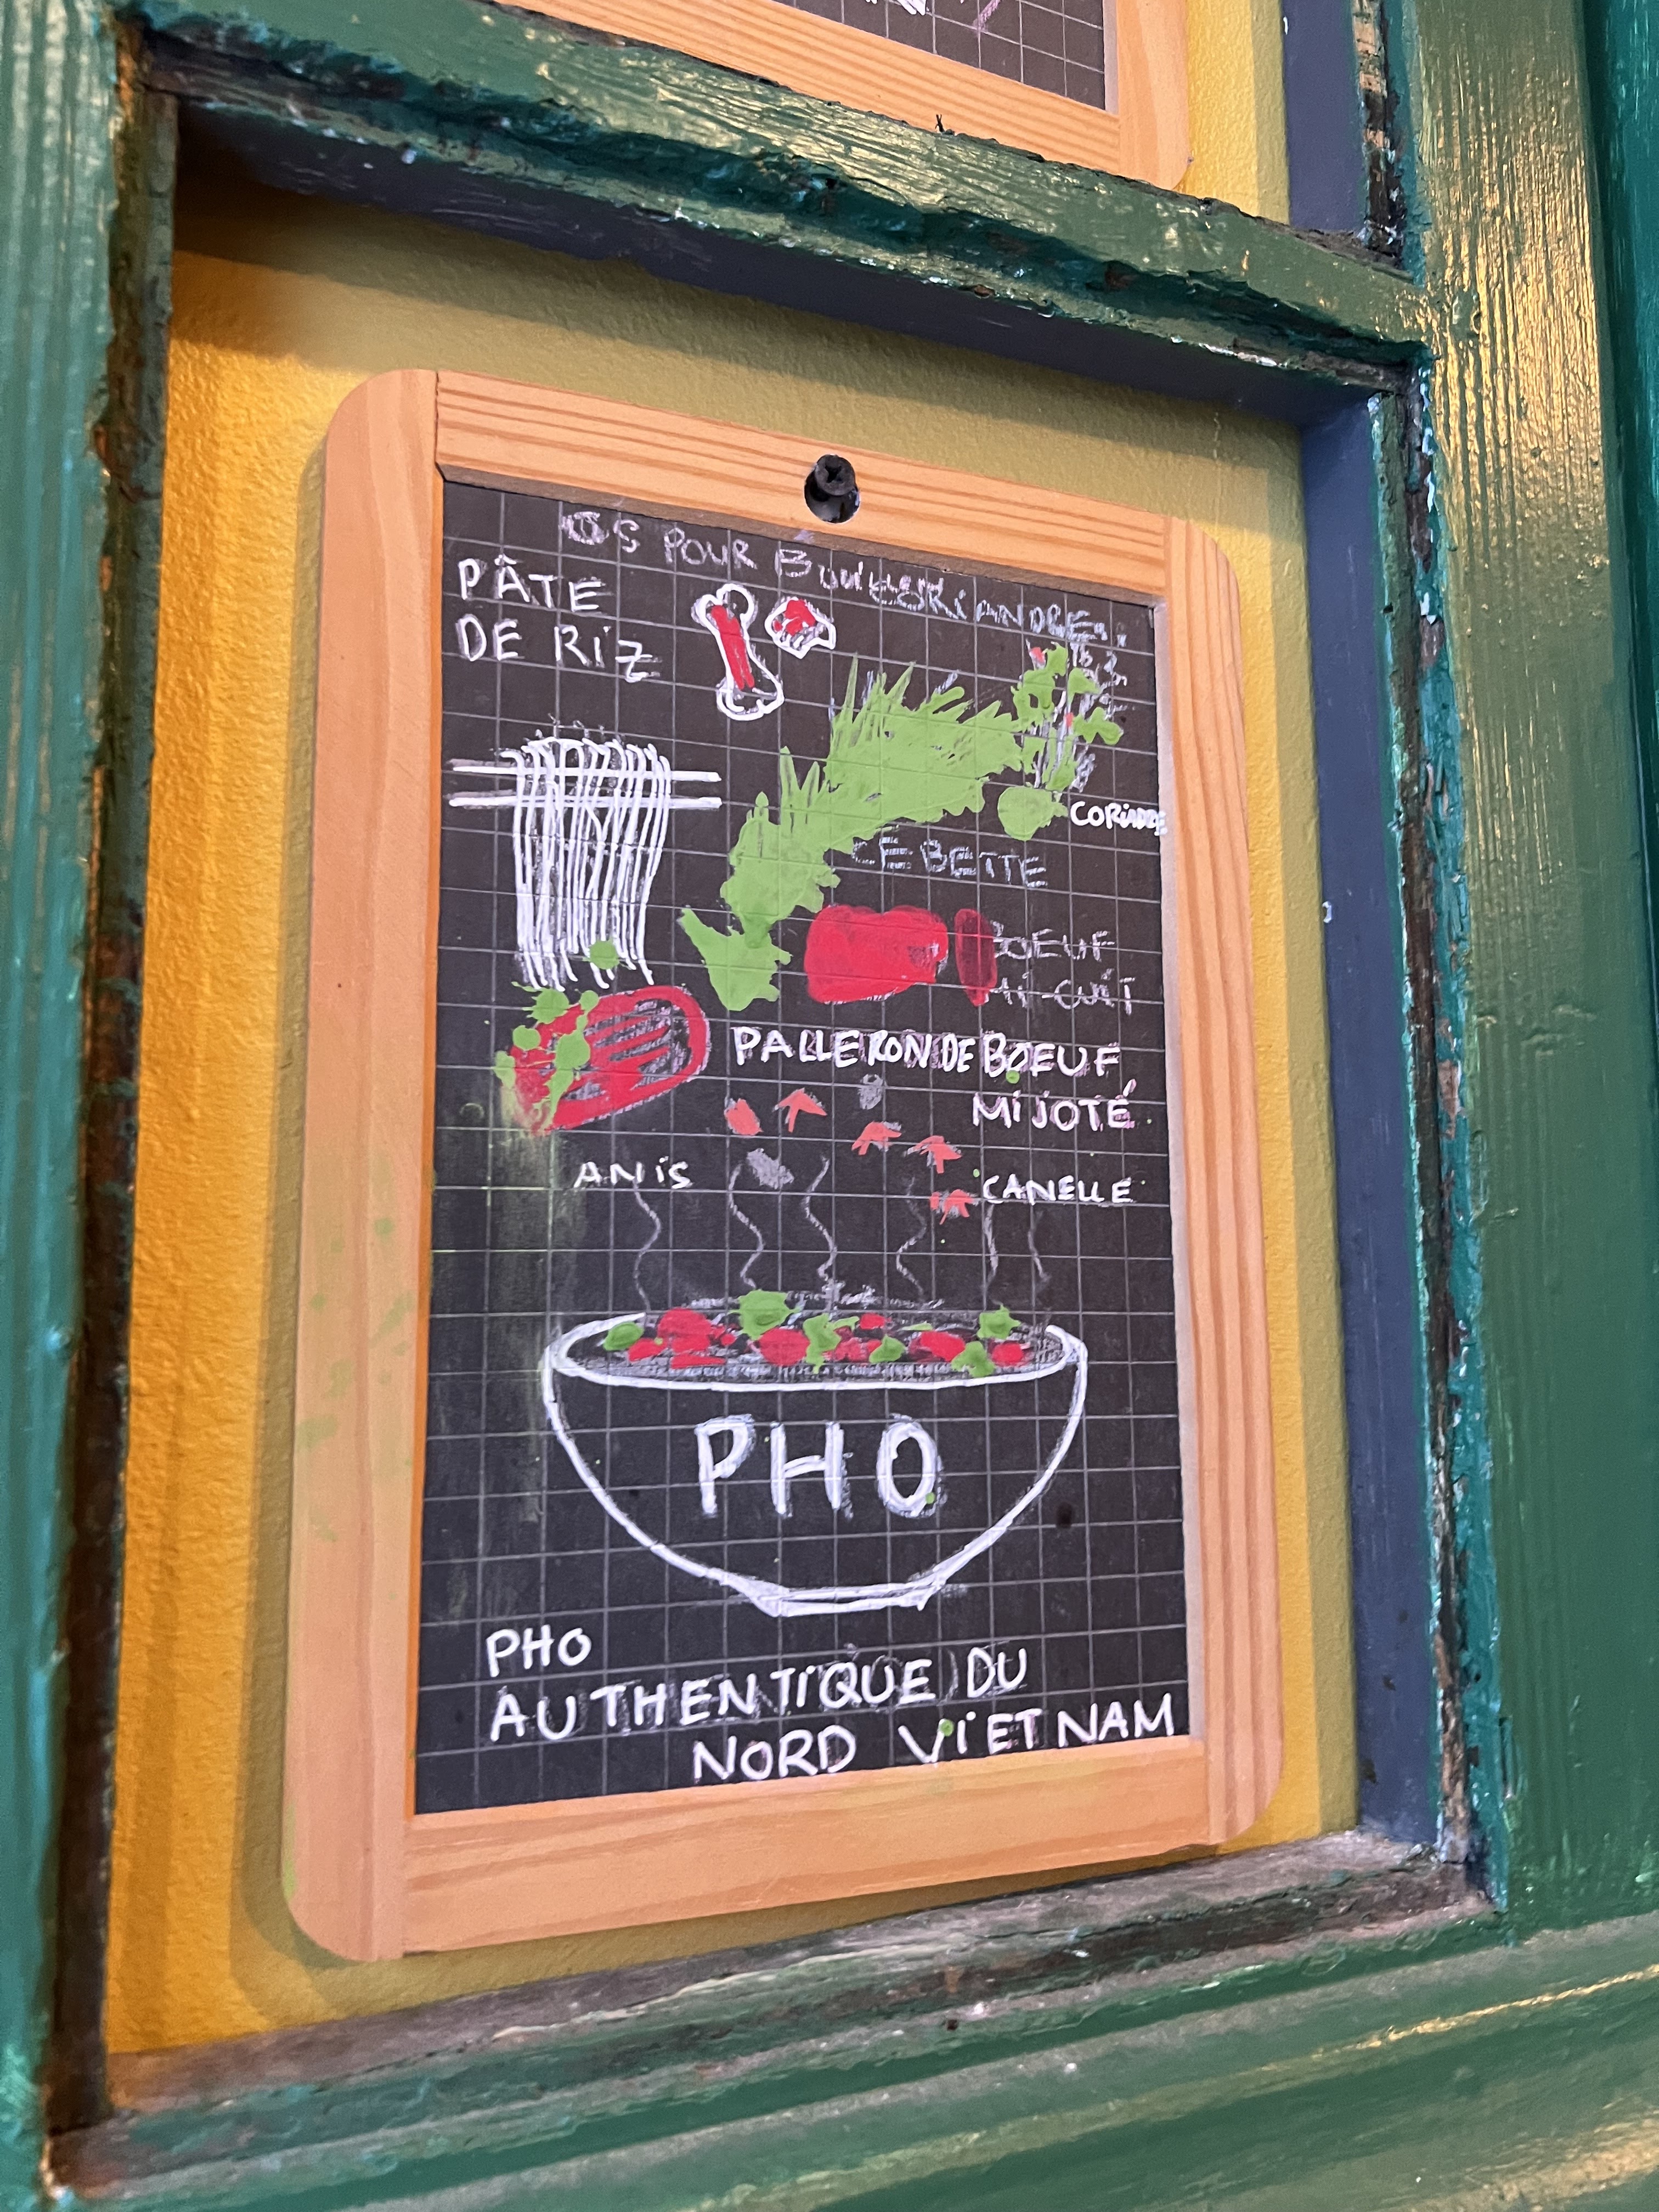 OS POUR BOUILLON
CORIANDRE
PÂTE
DE RIZ
CORIANDRE
CEBETTE
BOEUF
MI-CUIT
PALLERON DE BOEUF
MIJOTÉ
ANIS
CANELLE
PHO
PHO
AUTHENTIQUE DU
NORD VIETNAM